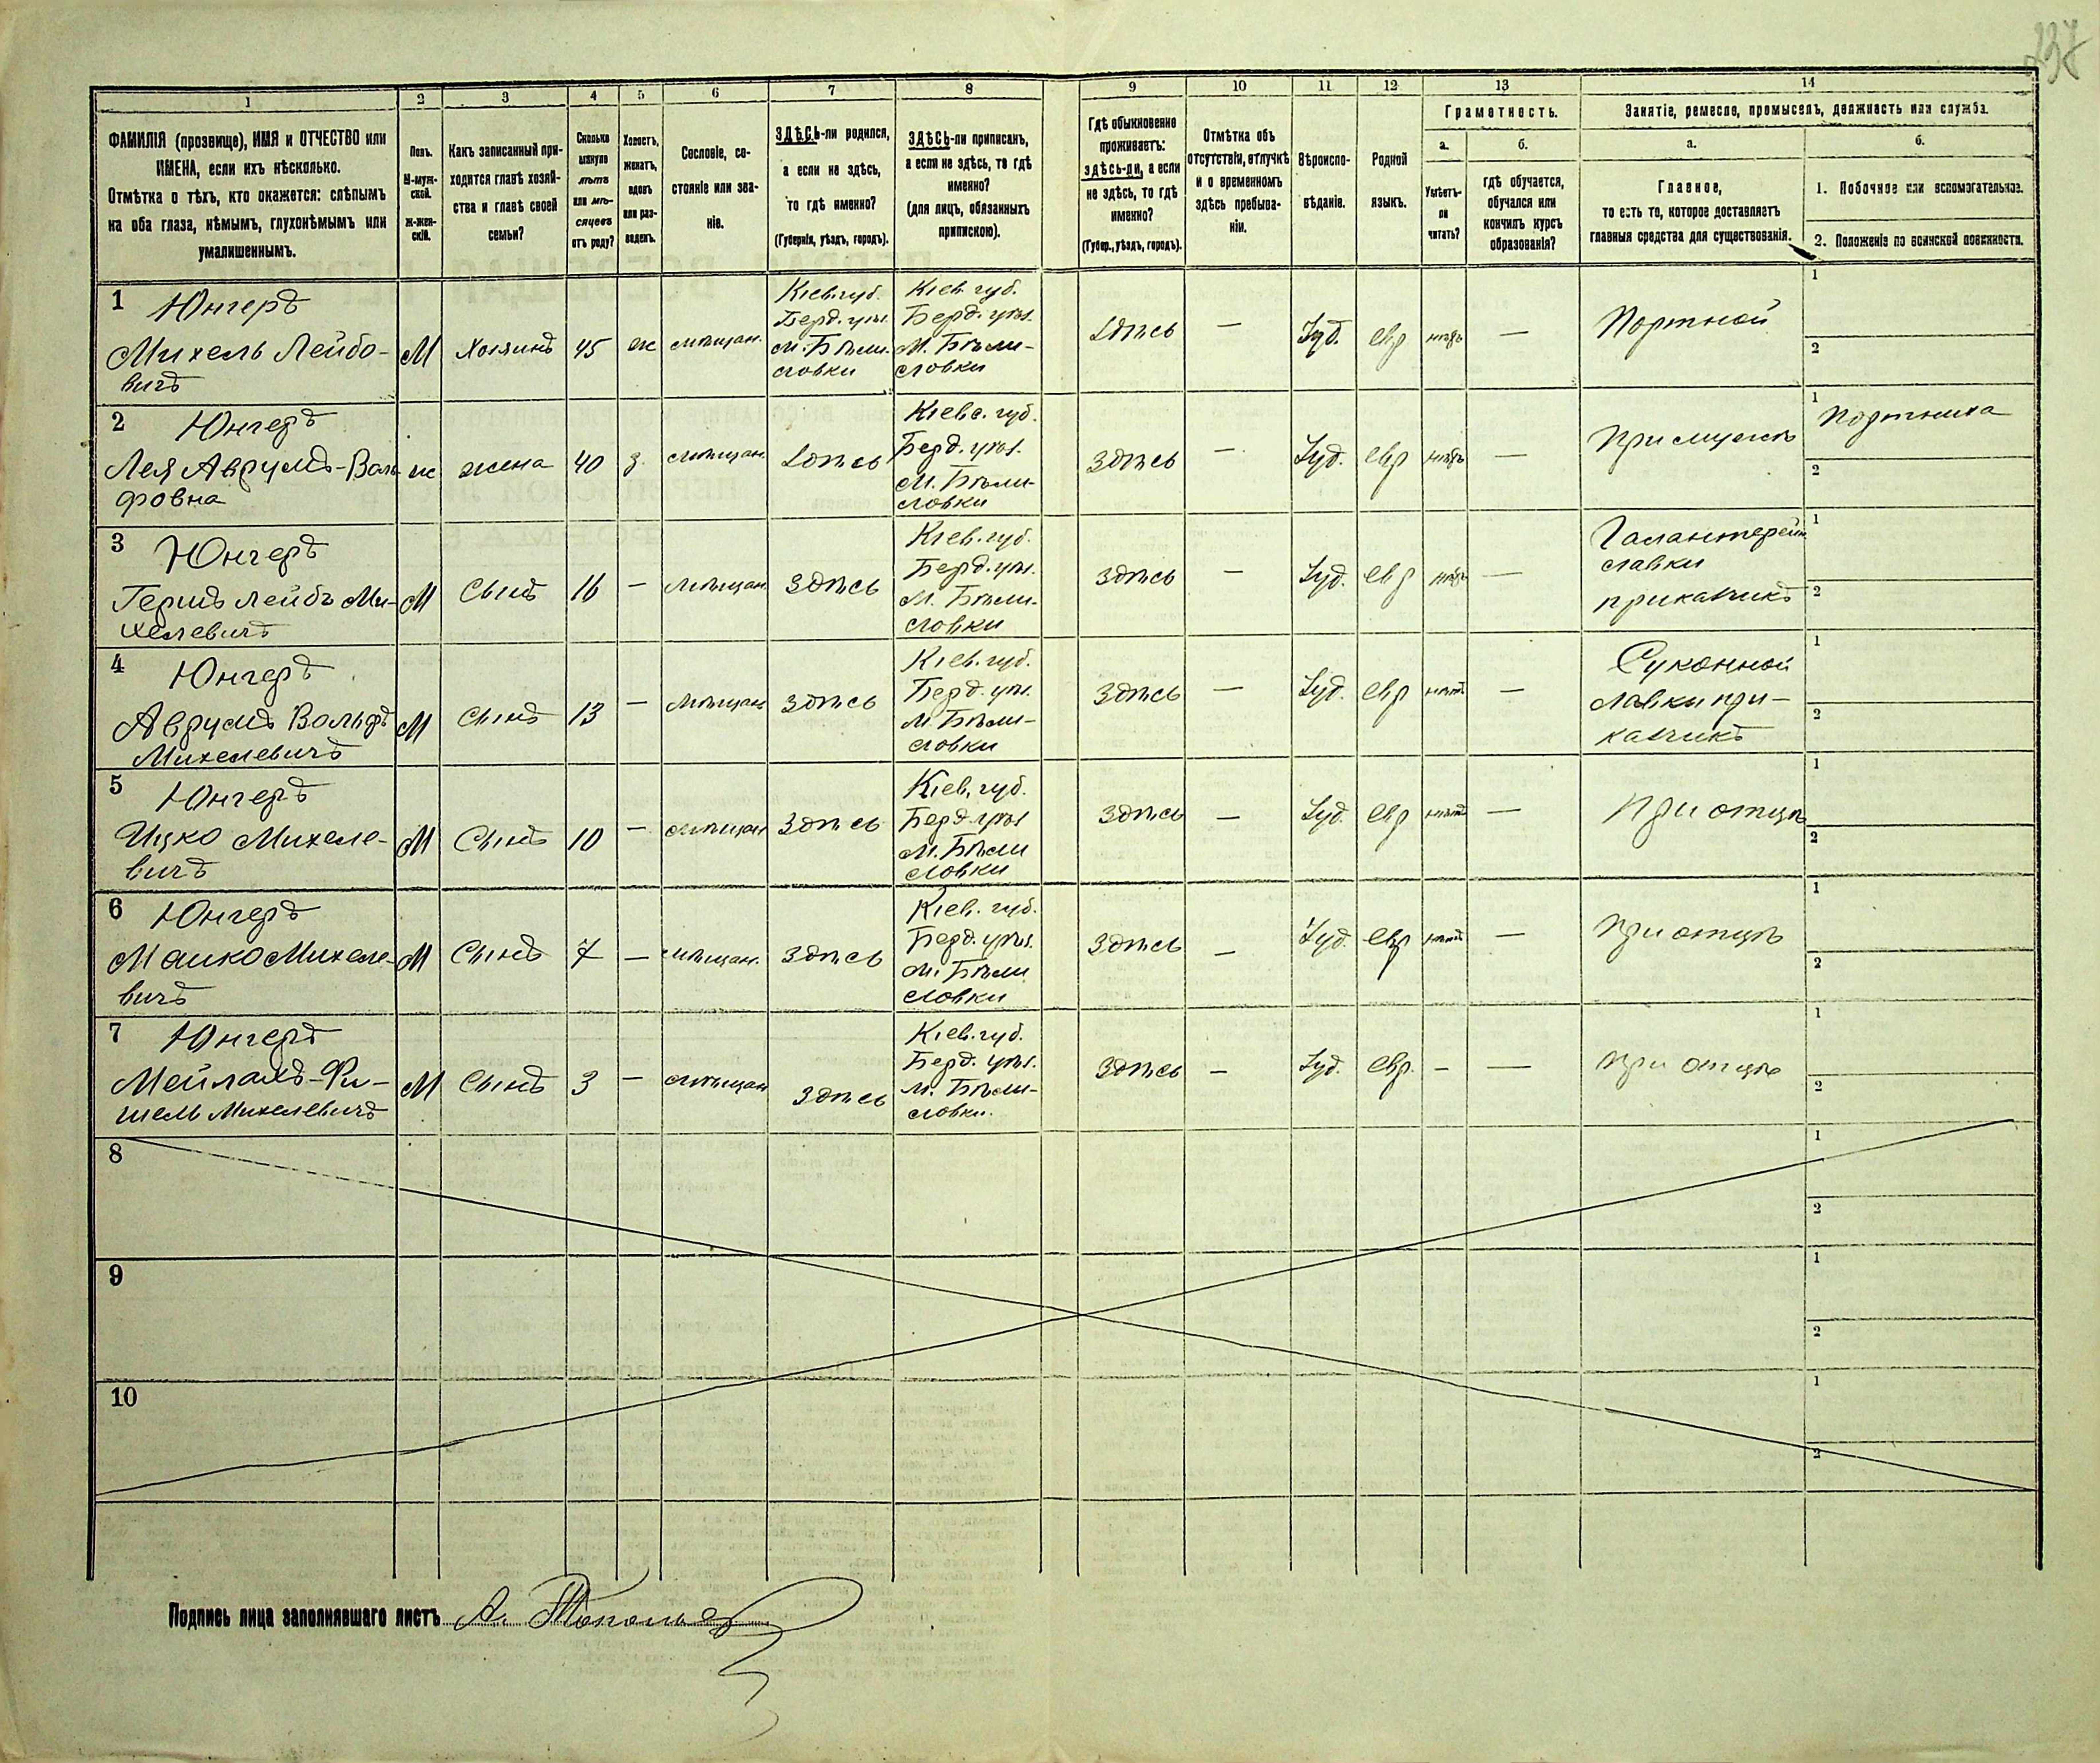 237
1 2 3 4 5 6 7 8 9 10 11 12 13 14
ФАМИЛІЯ (прозвище), ИМЯ и ОТЧЕСТВО или
ИМЕНА, если ихъ нѣсколько.
Отмѣтка о тѣхъ, кто окажется: слѣпымъ
на оба глаза, нѣмымъ, глухонѣмымъ или
умалишеннымъ.
Полъ.
М-муж-
ской.
Ж-жен-
скій.
Какъ записанный при-
ходится главѣ хозяй-
ства и главѣ своей
семьи?
Сколько
минуло
лѣтъ
или мѣ-
сяцевъ
отъ роду?
Холостъ,
женатъ,
вдовъ
или раз-
веденъ.
Сословіе, со-
стояніе или зва-
ніе.
ЗДѢСЬ-ли родился,
а если не здѣсь,
то гдѣ именно?
(Губернія, уѣздъ, городъ).
ЗДѢСЬ-ли приписанъ,
а если не здѣсь, то гдѣ
именно?
(для лицъ, обязанныхъ
припискою).
Гдѣ обыкновенно
проживаетъ:
здѣсь-ли, а если
не здѣсь, то гдѣ
именно?
(Губер., уѣздъ, городъ).
Отмѣтка объ
отсутствіи, отлучкѣ
и о временномъ
здѣсь пребыва-
ніи.
Вѣроиспо-
вѣданіе.
Родной
языкъ.
Грамотность.
а.
Умѣетъ-
ли
читать?
б.
гдѣ обучается,
обучался или
кончилъ курсъ
образованія?
Занятіе, ремесло, промыселъ, должность или служба.
а.
Главное,
то есть то, которое доставляетъ
главныя средства для существованія.
б.
1. Побочное или вспомогательное.
2. Положеніе по воинской повинности.
1 Юнгеръ
Михель Лейбо-
вичъ
М
Хозяинъ
45
ж
мѣщан.
Кіев. губ.
Берд. уѣз.
м. Бѣли-
ловки
Кіев. губ.
Берд. уѣз.
М. Бѣли-
ловки
Здѣсь
—
Іуд.
евр
—
Портной
1
2
2 Юнгеръ
Лея Аврумъ-Воль
фовна
ж
жена
40
з
мѣщан.
Здѣсь
Кіев. губ.
Берд. уѣз.
М. Бѣли-
ловки
Здѣсь
—
Іуд.
евр
—
При мужѣ
1 Портниха
2
3 Юнгеръ
Гершъ Лейбъ Ми-
хелевичъ
М
Сынъ
16
—
мѣщан.
Здѣсь
Кіев. губ.
Берд. уѣз.
М. Бѣли-
ловки
Здѣсь
—
Іуд.
евр
—
Галантерейн.
лавки
приказчикъ
1
2
4 Юнгеръ
Аврумъ Вольфъ
Михелевичъ
М
Сынъ
13
—
мѣщан
Здѣсь
Кіев. губ.
Берд. уѣз.
М. Бѣли-
ловки
Здѣсь
—
Іуд.
евр
нѣтъ
—
Суконной
лавки при-
казчикъ
1
2
5 Юнгеръ
Ицко Михеле-
вичъ
М
Сынъ
10
—
мѣщан
Здѣсь
Кіев. губ.
Берд. уѣз
М. Бѣли
ловки
Здѣсь
—
Іуд.
евр
нѣтъ
—
При отцѣ
1
2
6 Юнгеръ
Мошко Михеле-
вичъ
М
Сынъ
7
—
мѣщан.
Здѣсь
Кіев. губ.
Берд. уѣз.
М. Бѣли
ловки
Здѣсь
—
Іуд.
евр
нѣтъ
—
При отцѣ
1
2
7 Юнгеръ
Мейлахъ-Фи-
шель Михелевичъ
М
Сынъ
3
—
мѣщан
Здѣсь
Кіев. губ.
Берд. уѣз.
М. Бѣли-
ловки.
Здѣсь
—
Іуд.
евр.
—
—
При отцѣ
1
2
8
1
2
9
1
2
10
1
2
Подпись лица заполнявшаго листъ А.